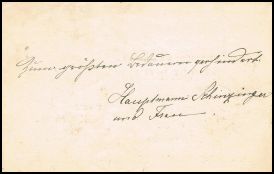 Zum größten Bedauern verhindert.
Hauptmann Schinzinger
und Frau.